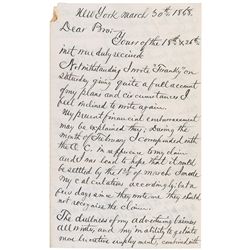 New York March 30th, 1868.
Dear Bro.
Yours of the 18th & 26th
inst was duly received
Notwithstanding I wrote "Frankly" on
Saturday giving quite a full account
of my plans and circumstances I
feel inclined to write again.
My present financial embarrassment
may be explained thus, During the
month of February I corresponded with
the Q. C. in reference to my claim
and was lead to hope that it would
be settled by the 1st of March I made
my calculations accordingly, but a
few days since they wrote me they should
not recognize the claim.
The dullness of my advertising business
all winter, and my inability to get into
more lucrative employment, combined with